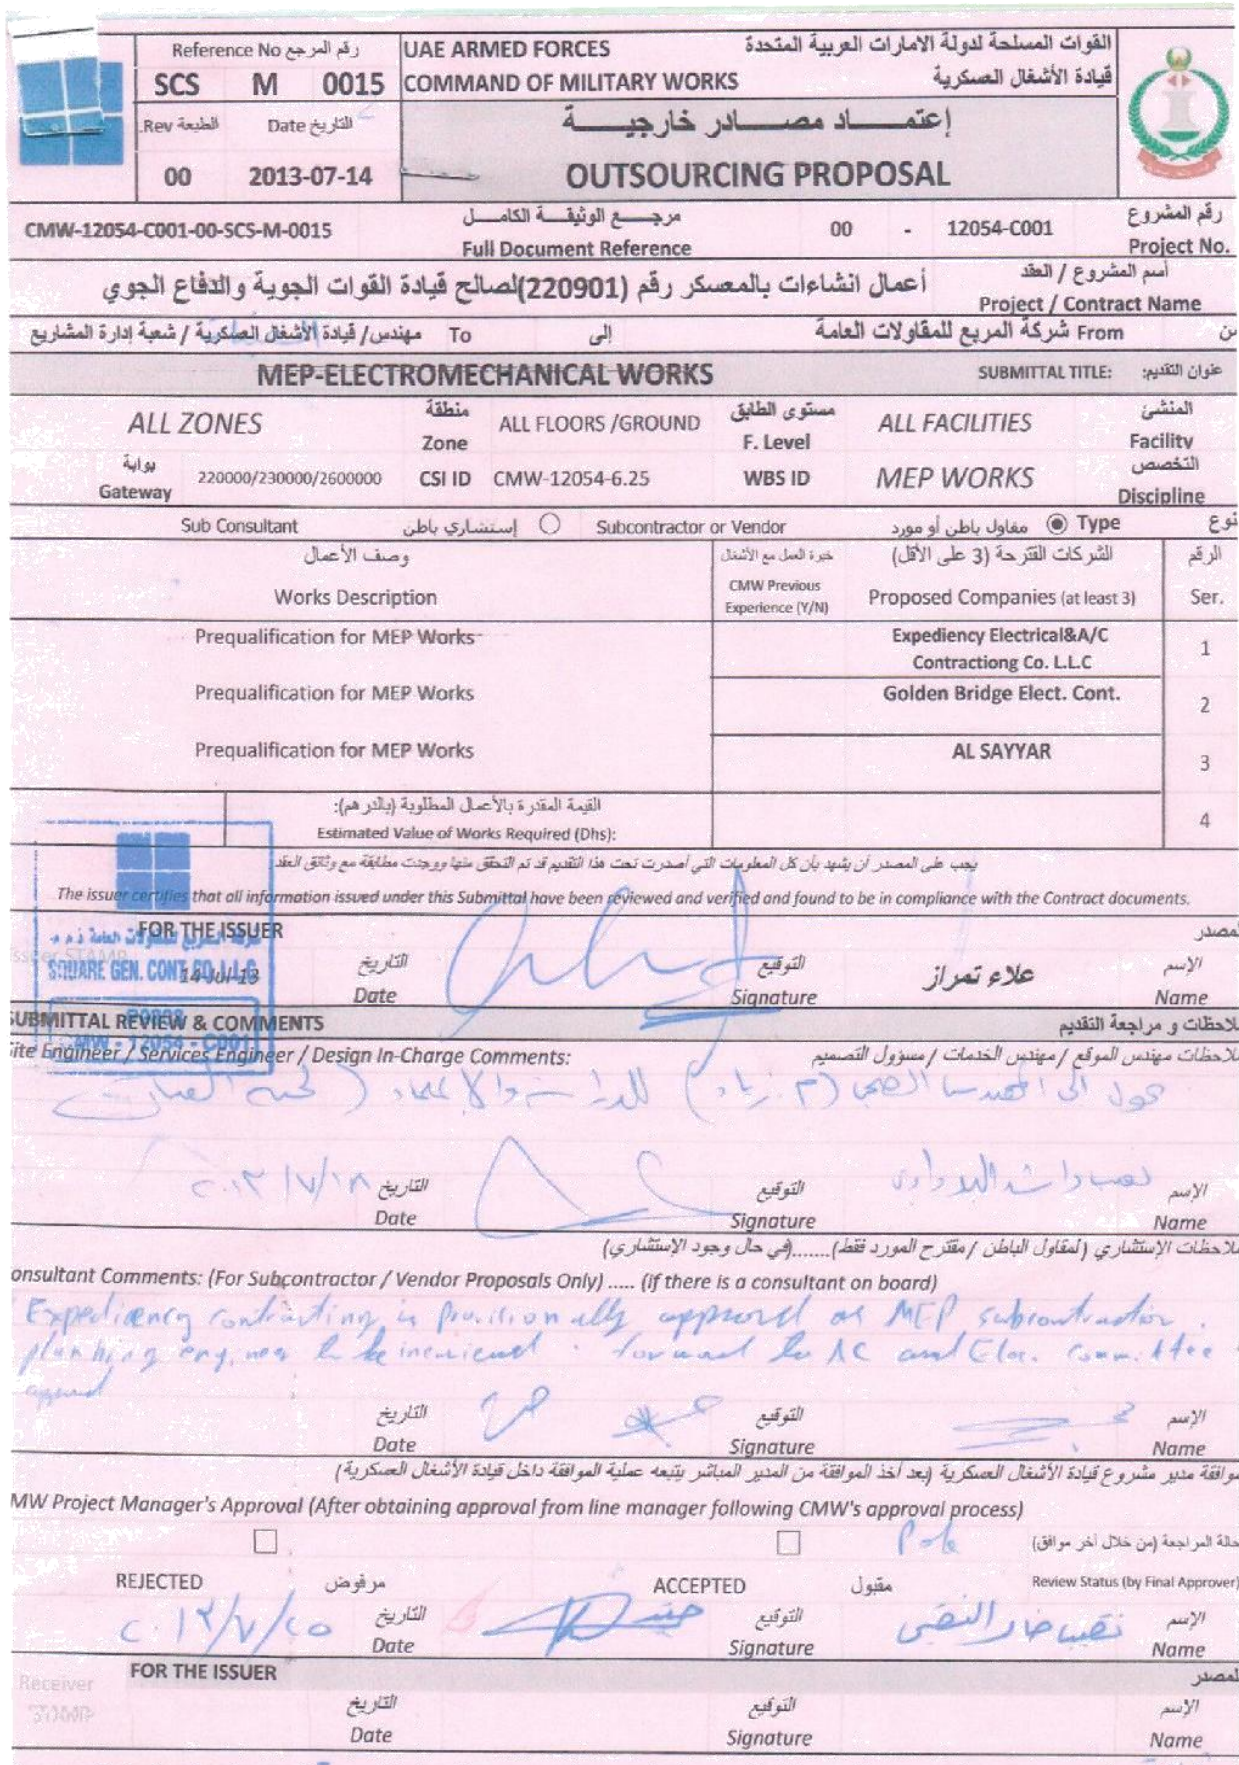 Reference No رقم المرجع
SCS M 0015
Rev. الطبعة Date التاريخ
00 2013-07-14
UAE ARMED FORCES القوات المسلحة لدولة الامارات العربية المتحدة
COMMAND OF MILITARY WORKS قيادة الأشغال العسكرية
إعتمـــــاد مصـــــادر خارجيـــــة
OUTSOURCING PROPOSAL
CMW-12054-C001-00-SCS-M-0015
مرجـــع الوثيقـــة الكامـــل
Full Document Reference
00 - 12054-C001
رقم المشروع
Project No.
أعمال انشاءات بالمعسكر رقم (220901)لصالح قيادة القوات الجوية والدفاع الجوي
أسم المشروع / العقد
Project / Contract Name
من From شركة المربع للمقاولات العامة
إلى To مهندس/ قيادة الأشغال العسكرية / شعبة إدارة المشاريع
MEP-ELECTROMECHANICAL WORKS SUBMITTAL TITLE: عنوان التقديم:
ALL ZONES منطقة Zone ALL FLOORS /GROUND مستوى الطابق F. Level ALL FACILITIES المنشئ Facility
بوابة Gateway 220000/230000/2600000 CSI ID CMW-12054-6.25 WBS ID MEP WORKS التخصص Discipline
Sub Consultant إستشاري باطن Subcontractor or Vendor مقاول باطن أو مورد Type نوع
وصف الأعمال خبرة العمل مع الأشغال الشركات القترحة (3 على الأقل) الرقم
Works Description CMW Previous Experience (Y/N) Proposed Companies (at least 3) Ser.
Prequalification for MEP Works Expediency Electrical&A/C Contractiong Co. L.L.C 1
Prequalification for MEP Works Golden Bridge Elect. Cont. 2
Prequalification for MEP Works AL SAYYAR 3
القيمة المقدرة بالأعمال المطلوبة (بالدرهم):
Estimated Value of Works Required (Dhs): 4
يجب على المصدر أن يشهد بأن كل المعلومات التي أصدرت تحت هذا التقديم قد تم التحقق منها ووجدت مطابقة مع وثائق العقد
The issuer certifies that all information issued under this Submittal have been reviewed and verified and found to be in compliance with the Contract documents.
FOR THE ISSUER المصدر
SQUARE GEN. CONT. CO. L.L.C
14-Jul-13 التاريخ Date التوقيع Signature علاء تمراز الإسم Name
SUBMITTAL REVIEW & COMMENTS ملاحظات و مراجعة التقديم
MW - 12054 - C001
Site Engineer / Services Engineer / Design In-Charge Comments: ملاحظات مهندس الموقع / مهندس الخدمات / مسؤول التصميم
٢٠١٣/٧/١٨ التاريخ Date التوقيع Signature الإسم Name
ملاحظات الإستشاري (لمقاول الباطن / مقترح المورد فقط).......(في حال وجود الإستشاري)
onsultant Comments: (For Subcontractor / Vendor Proposals Only) ..... (if there is a consultant on board)
Expediency contracting is provisionally approved as MEP subcontractor.
plumbing engineer to be interviewed. forward to AC and Elec. Committee
التاريخ Date التوقيع Signature الإسم Name
موافقة مدير مشروع قيادة الأشغال العسكرية (بعد أخذ الموافقة من المدير المباشر يتبعه عملية الموافقة داخل قيادة الأشغال العسكرية)
MW Project Manager's Approval (After obtaining approval from line manager following CMW's approval process)
حالة المراجعة (من خلال أخر موافق)
REJECTED مرفوض ACCEPTED مقبول Review Status (by Final Approver)
٢٠١٣/٧/٢٥ التاريخ Date التوقيع Signature الإسم Name
FOR THE ISSUER المصدر
Receiver STAMP
التاريخ Date التوقيع Signature الإسم Name